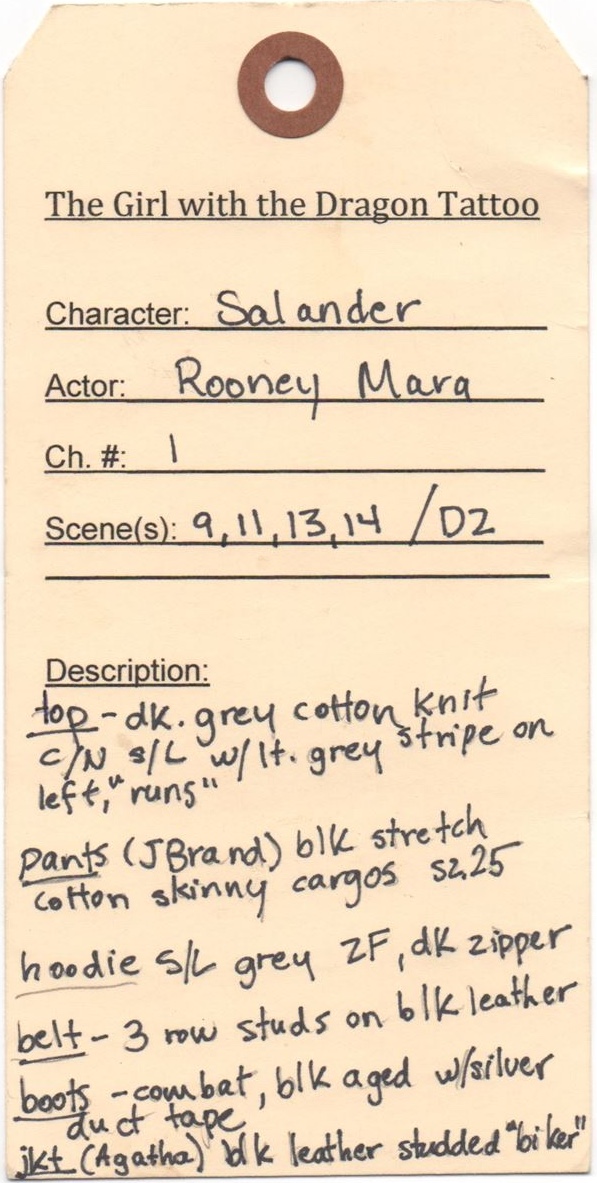 The Girl with the Dragon Tattoo
Character: Salander
Actor: Rooney Mara
Ch. #: 1
Scene(s): 9,11,13,14 /D2
Description:
top - dk. grey cotton knit
c/N s/L w/lt. grey stripe on
left, "runs"
pants (JBrand) blk stretch
cotton skinny cargos sz.25
hoodie S/L grey ZF, dk zipper
belt - 3 row studs on blk leather
boots - combat, blk aged w/silver
duct tape
jkt (Agatha) blk leather studded "biker"